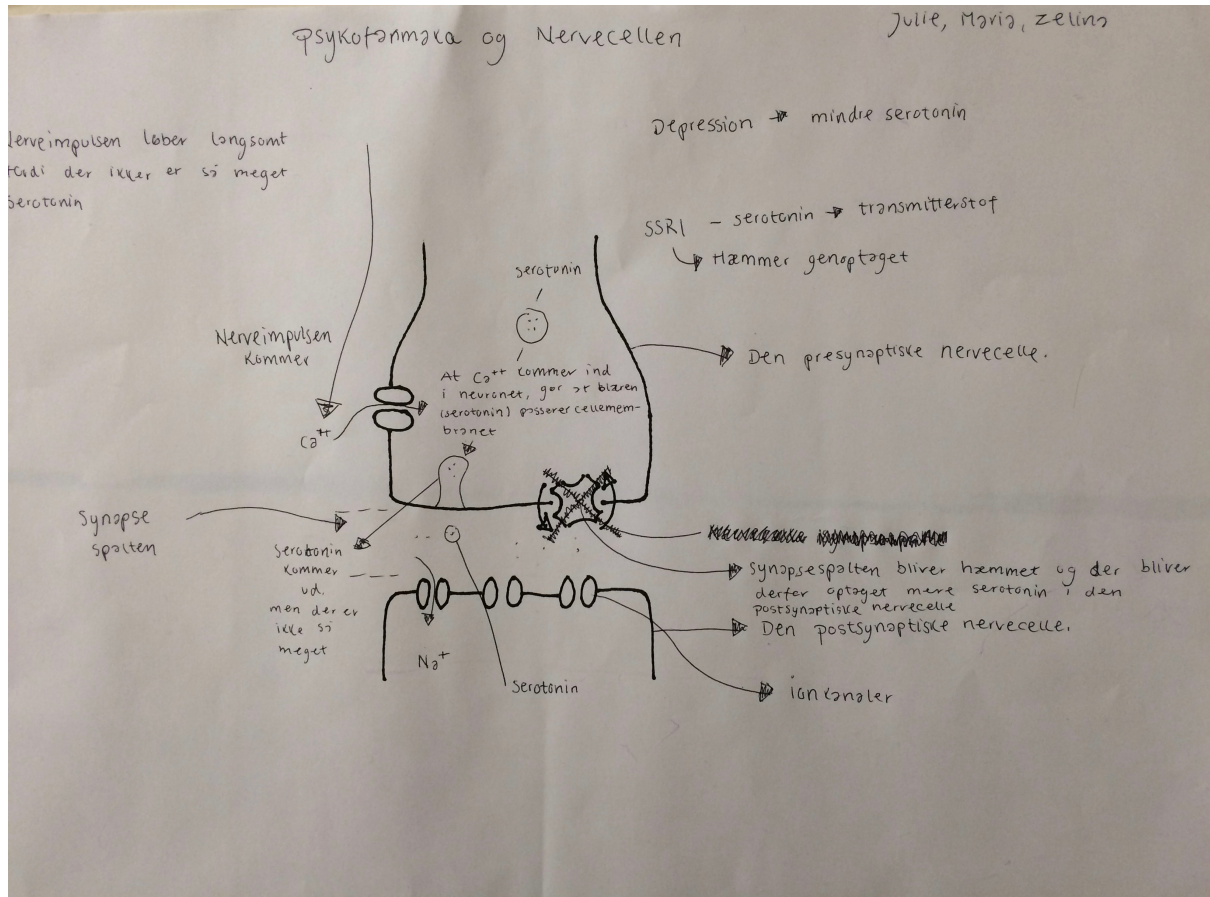 Psykofarmaka og Nervecellen
Julie, Maria, Zelina
Nerveimpulsen løber langsomt
fordi der ikker er så meget
serotonin
Depression → mindre serotonin
SSRI – serotonin → transmitterstof
Hæmmer genoptaget
serotonin
Nerveimpulsen
kommer
Ca⁺⁺
At Ca⁺⁺ kommer ind
i neuronet, gør at blæren
(serotonin) passerer cellemem-
branet
Den presynaptiske nervecelle.
Synapse
spalten
Serotonin
kommer
ud,
men der er
ikke så
meget
Synapsespalten bliver hæmmet og der bliver
derfor optaget mere serotonin i den
postsynaptiske nervecelle
Den postsynaptiske nervecelle.
Na⁺
Serotonin
ionkanaler